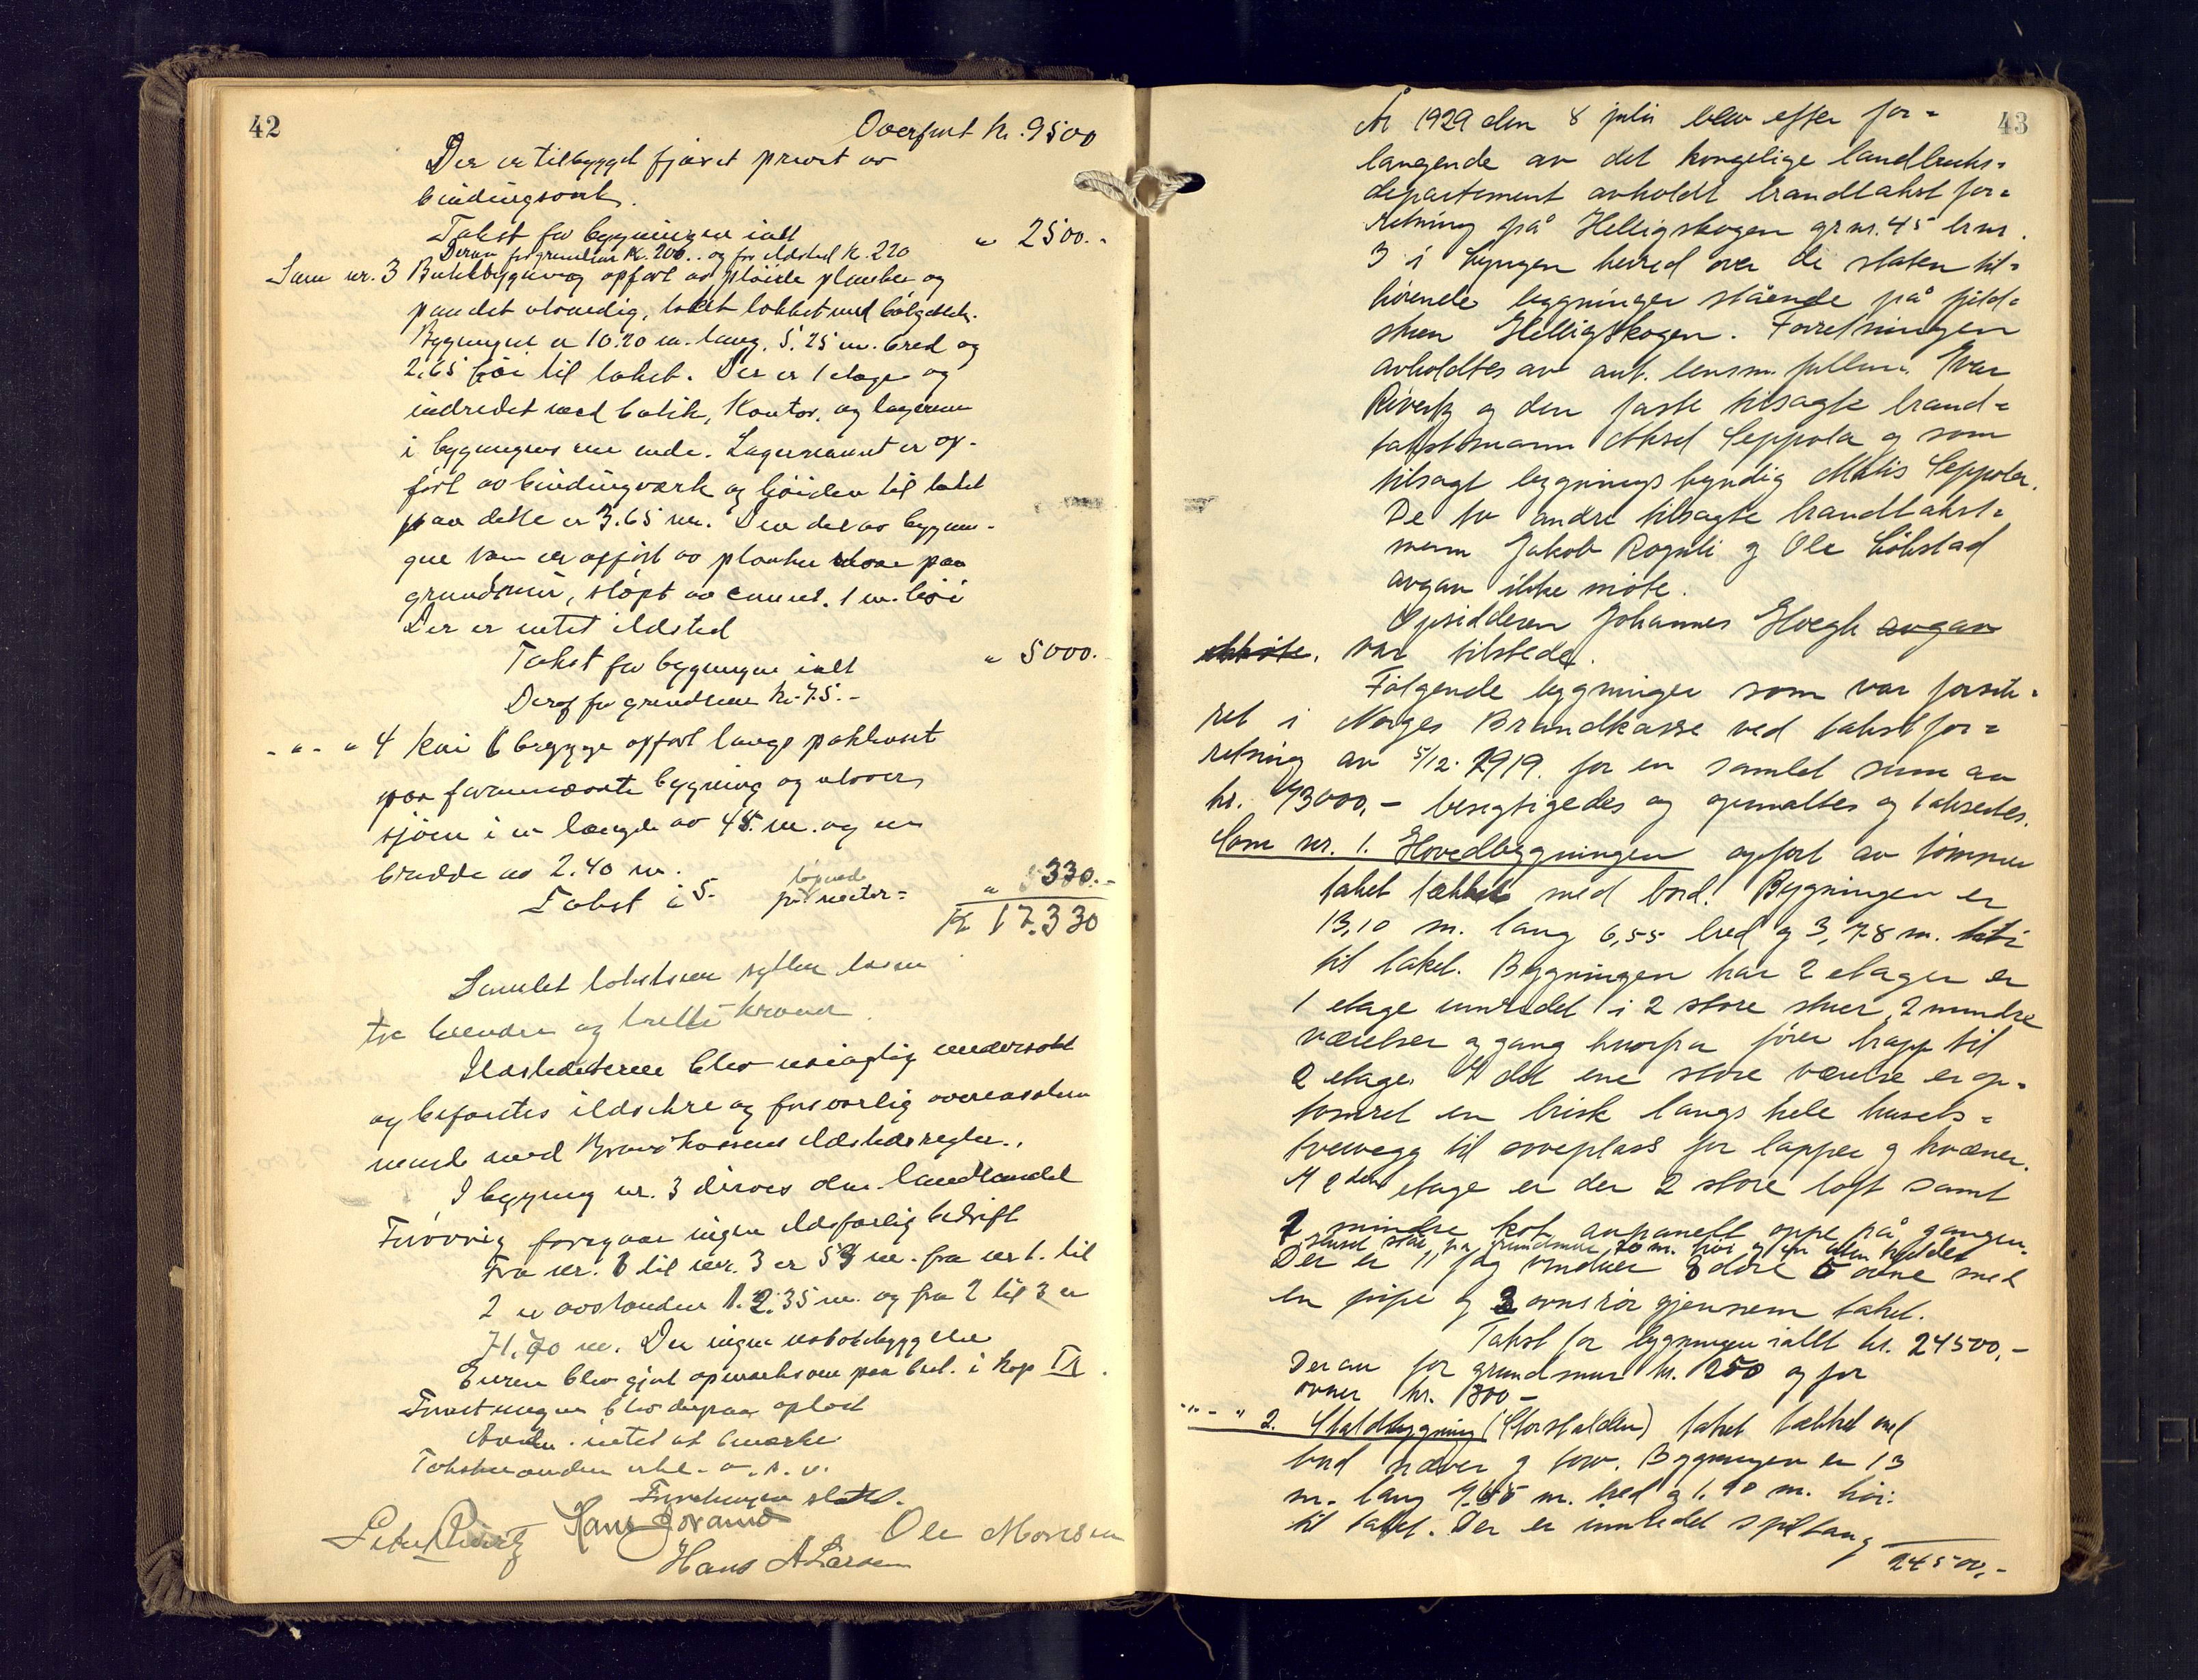 42
Overført kr. 9500
Der er tilbygget fjøset privet av
bindingsverk.
Takst for bygningen ialt " 2500.-
Derav for grundmur kr. 200.. og for ildsted kr. 220
Som nr. 3 Butikbygning opført av pløide planker og
panelet utvendig, taket tækket med bølgeblik.
Bygningen er 10.20 m. lang, 5.25 m. bred og
2,65 høi til taket. Der er 1 etage og
indredet med butik, Kontor, og lagerrum
i bygningens ene ende. Lagerrummet er op-
ført av bindingværk og høiden til taket
paa dette er 3.65 m. Den del av bygnin-
gen som er opført av planker staar paa
grundmur, støpt av cement. 1 m. høi
Der er intet ildsted
Takst for bygningen ialt " 5000.-
Derof for grundmur kr. 75.-
- " - " 4 Kai brygge opført langs pakhuset
paa forannævnte bygning og utover
sjøen i en længde av 45 m. og en
bredde av 2.40 m.
Takst à 5.- løpende pr. meter = " 330.-
Kr 17.330
Samlet takstsum sytten tusen
tre hundre og tretti kroner.
Ildstederne blev nøiagtig undersøkt
og befantes ildsikre og forsvarlig overensstem
mende med Brandkassens ildstedsregler.
I bygning nr. 3 drives den landhandel
Forøvrig foregaar ingen ildsfarlig bedrift
Fra nr. 1 til nr. 3 er 59 m. fra nr 1. til
2 er avstanden 12.35 m. og fra 2 til 3 er
71.70 m. Der ingen nabobebyggelse
Eieren blev gjort opmerksom paa best. i kap IX.
Forretningen blev derpaa oplæst
intet at bemærke
Takstmændene erkl. o. s. v.
Forretningen sluttet.
Hans Jovannes
Ole Monsen
Hans A Larsen
43
År 1929 den 8 juli blev efter for-
langende av det kongelige landbruks-
departement avholdt brandtakst for-
retning på Helligskogen gr nr. 45 br nr.
3 i Lyngen herred over de staten til-
hørende bygninger stående på fjeld-
stuen Helligskogen. Forretningen
avholdtes av aut. lensm. fullm. Ivar
Rivertz og den faste tilsagte brand-
takstmann Aksel Seppola og som
tilsagt bygningskyndig Matis Seppola.
De to andre tilsagte brandtakst-
menn Jakob Rognli og Ole Løkstad
avgav ikke møte.
Opsidderen Johannes Hoegh avgav
ikke møte. var tilstede.
Følgende bygninger som var forsik-
ret i Norges Brandkasse ved takstfor-
retning av 5/12. 1919. for en samlet sum av
kr. 43000,- besigtigedes og opmaltes og taksertes.
Som nr. 1. Hovedbygningen opført av tømmer
taket tækket med bord. Bygningen er
13,10 m. lang 6,55 bred og 3,78 m. høi
til taket. Bygningen har 2 etager er
1 etage innredet i 2 store stuer, 2 mindre
værelser og gang hvorfra fører trapp til
2 etage. I det ene store værelse er op-
tømret en brisk langs hele husets-
tvervegg til soveplass for lapper og kvæner.
I 2den etage er der 2 store loft samt
2 mindre kot avpanelt oppe på gangen.
Huset står på grundmur 70 m. høi og en alen bredde
Der er 11 fag vinduer 8 døre 5 ovne med
en pipe og 3 ovnsrør gjennem taket.
Takst for bygningen ialt kr. 24500,-
Derav for grundmur kr. 250 og for
ovner kr. 300-
- " - " 2. Staldbygning (Storstalden) taket tækket med
bord næver og torv. Bygningen er 13
m. lang 9.65 m. bred og 1.90 m. høi
til taket. Der er innredet spiltaug
24500,-